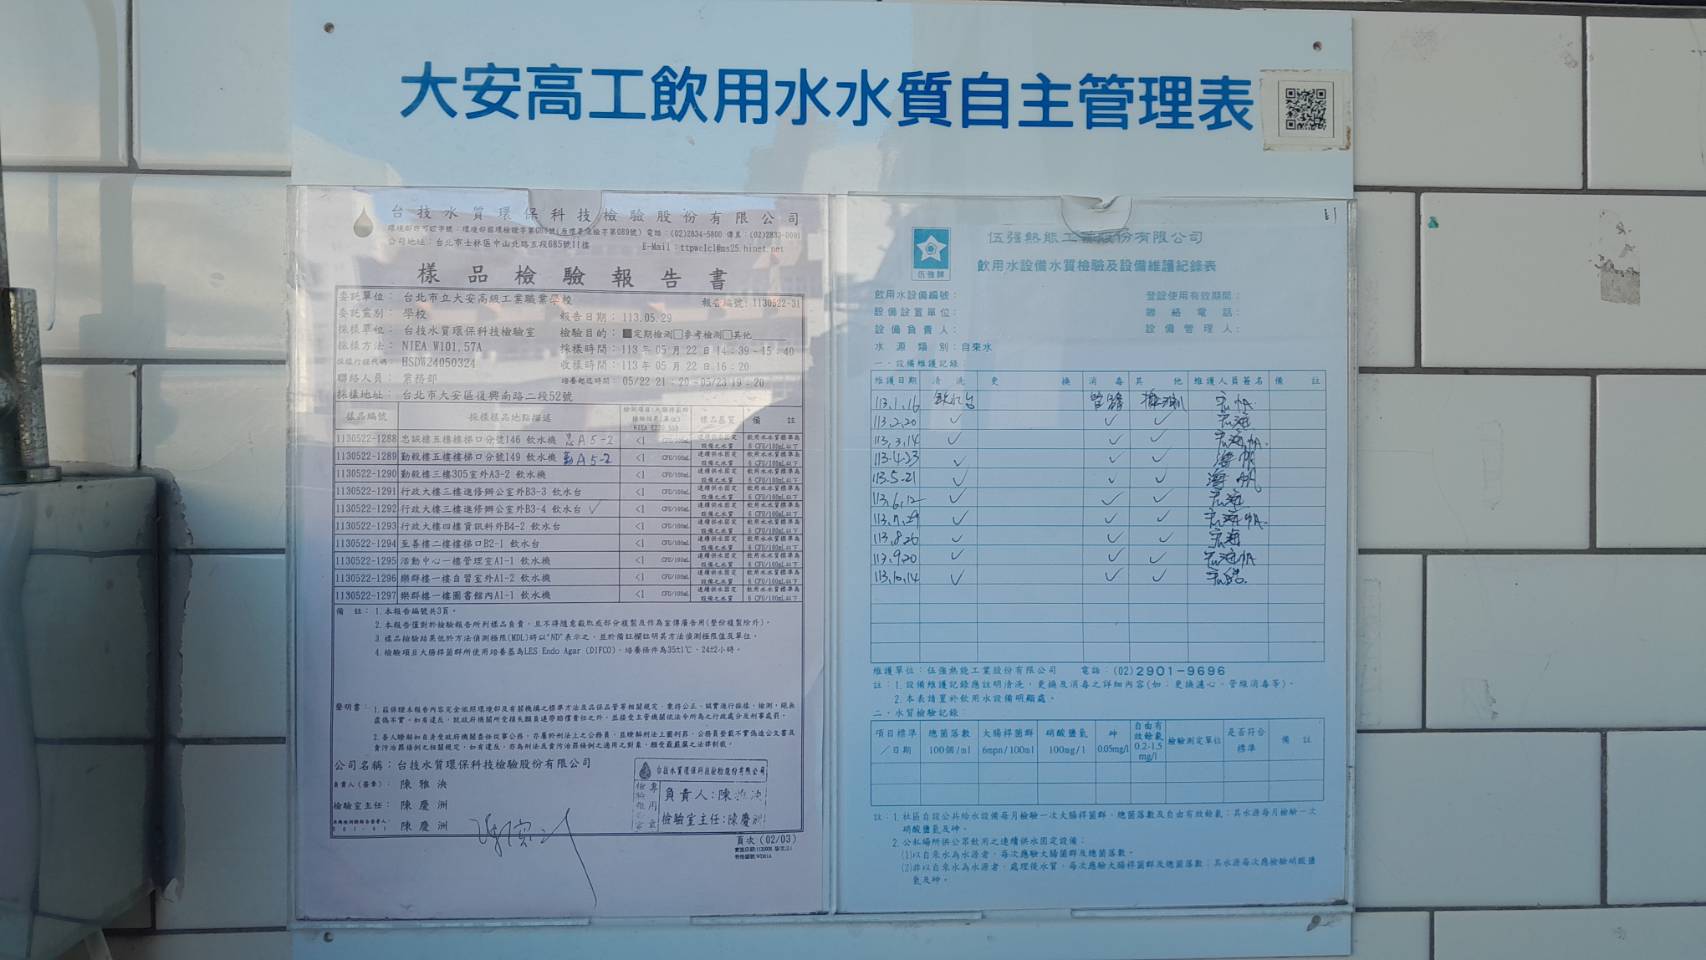 大安高工飲用水水質自主管理表
台技水質環保科技檢驗股份有限公司
公司地址：台北市士林區中山北路五段685號11樓
樣品檢驗報告書
委託單位：台北市立大安高級工業職業學校
報告編號：1130522-31
委託業別：學校
報告日期：113.05.29
採樣單位：台技水質環保科技檢驗室
檢驗目的：■定期檢測□參考檢測□其他
採樣方法：NIEA W101.57A
採樣時間：113年05月22日14:39-15:40
HSDW24050324
收樣時間：113年05月22日16:20
聯絡人員：業務部
培養起迄時間：05/22 21:20-05/23 19:20
採樣地址：台北市大安區復興南路二段52號
樣品編號 採樣樣品地點描述 樣品基質 備註
1130522-1288 忠誠樓五樓樓梯口分號146 飲水機 忠A5-2 <1 CFU/100mL
1130522-1289 勤毅樓五樓樓梯口分號149 飲水機 勤A5-2 <1 CFU/100mL
1130522-1290 勤毅樓三樓305室外A3-2 飲水機 <1 CFU/100mL
1130522-1291 行政大樓三樓進修辦公室外B3-3 飲水台 <1 CFU/100mL
1130522-1292 行政大樓三樓進修辦公室外B3-4 飲水台 ✓ <1 CFU/100mL
1130522-1293 行政大樓四樓資訊科外B4-2 飲水台 <1 CFU/100mL
1130522-1294 至善樓二樓樓梯口B2-1 飲水台 <1 CFU/100mL
1130522-1295 活動中心一樓管理室A1-1 飲水機 <1 CFU/100mL
1130522-1296 樂群樓一樓自習室外A1-2 飲水機 <1 CFU/100mL
1130522-1297 樂群樓一樓圖書館內A1-1 飲水機 <1 CFU/100mL
備註：1.本報告編號共3頁。
2.本報告僅對於檢驗報告所列樣品負責，且不得隨意截取或部分複製及作為宣傳廣告用(整份複製除外)。
3.樣品檢驗結果低於方法偵測極限(MDL)時以"ND"表示之，並於備註欄註明其方法偵測極限值及單位。
4.檢驗項目大腸桿菌群所使用培養基為LES Endo Agar (DIFCO)，培養條件為35±1℃、24±2小時。
聲明書：
公司名稱：台技水質環保科技檢驗股份有限公司
負責人(簽章)：陳雅泱
檢驗室主任：陳慶洲
陳慶洲
台技水質環保科技檢驗股份有限公司
負責人：陳雅泱
檢驗室主任：陳慶洲
頁次(02/03)
伍強牌
伍強熱能工業股份有限公司
飲用水設備水質檢驗及設備維護紀錄表
飲用水設備編號：
登錄使用有效期間：
設備設置單位：
聯絡電話：
設備負責人：
設備管理人：
水源類別：自來水
一、設備維護記錄：
維護日期 清洗 更換 消毒 其他 維護人員簽名 備註
113.1.16 飲水台 管路
113.2.20 ✓ ✓
113.3.14 ✓ ✓ ✓
113.4.23 ✓ ✓ ✓
113.5.21 ✓ ✓ ✓
113.6.12 ✓ ✓ ✓
113.7.29 ✓ ✓ ✓
113.8.26 ✓ ✓ ✓
113.9.20 ✓ ✓ ✓
113.10.14 ✓ ✓ ✓
維護單位：伍強熱能工業股份有限公司 電話：(02)2901-9696
註：1.設備維護記錄應註明清洗、更換及消毒之詳細內容(如：更換濾心、管線消毒等)。
2.本表請置於飲用水設備明顯處。
二、水質檢驗記錄：
項目標準/日期 總菌落數100個/ml 大腸桿菌群6mpn/100ml 硝酸鹽氮100mg/l 砷0.05mg/l 自由有效餘氯0.2-1.5mg/l 檢驗測定單位 是否符合標準 備註
註：1.社區自設公共給水設備每月檢驗一次大腸桿菌群、總菌落數及自由有效餘氯；其水源每月檢驗一次
硝酸鹽氮及砷。
2.公私場所供公眾飲用之連續供水固定設備：
(1)以自來水為水源者，每次應驗大腸菌群及總菌落數。
(2)非以自來水為水源者，處理後水質，每次應驗大腸桿菌群及總菌落數；其水源每次應檢驗硝酸鹽
氮及砷。